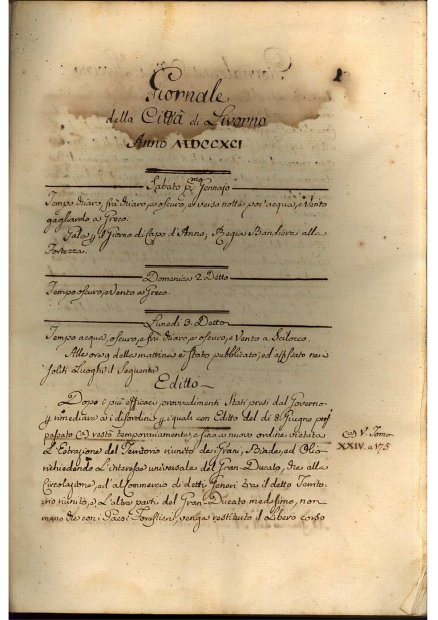 Giornale
della Città di Livorno
Anno MDCCXCI
Sabato p.mo Gennajo
Tempo chiaro, frà chiaro, e oscuro, e verso notte poc' acqua, e Vento
gagliardo a Greco.
Gala p il Giorno di Capo d'Anno, Regia Bandiera alla
Fortezza.
Domenica 2 Detto
Tempo oscuro, e Vento a Greco.
Lunedi 3. Detto
Tempo acqua, oscuro, e frà chiaro, e oscuro, e Vento a Scilocco.
Alle ore 9 della mattina è stato pubblicato, ed affissato nei
soliti Luoghi il seguente
Editto
Dopo i più efficaci provvedimenti Stati presi dal Governo
p rimediare a i disordini p i quali con Editto del dì 8 Giugno
passato (a) restò temporariamente, e fino a nuovo ordine vietata
L'Estrazione del Territorio riunito dei Grani, Biade, ed Olio
richiedendo L'interesse universale del Gran-Ducato, che alla
Circolazione, ed al Commercio di detti Generi trà il detto Territo-
rio riunito, e L'altre parti del Gran-Ducato medesimo, non
meno che con i Paesi Forestieri, venga restituito il Libero corso
(a) V. Tomo
XXIV. a 175